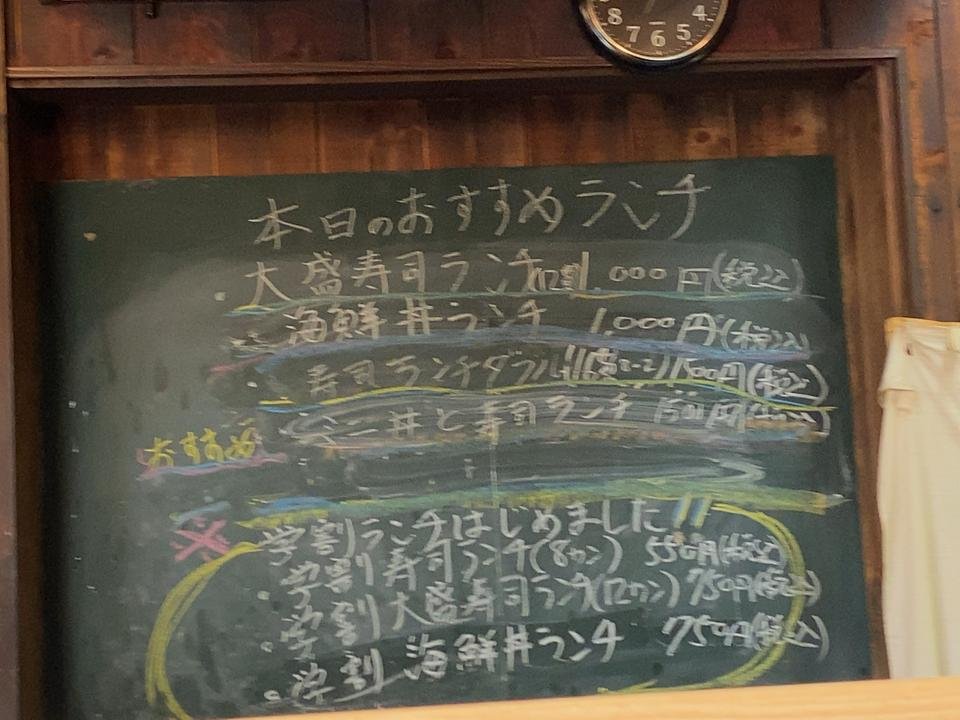 8 7 6 5 4
本日のおすすめランチ
大盛寿司ランチ 1.000円(税込)
海鮮丼ランチ 1.000円(税込)
寿司ランチダブル 1500円(税込)
ミニ丼と寿司ランチ
おすすめ
※学割ランチはじめました!!
学割寿司ランチ(8カン) 550円(税込)
学割大盛寿司ランチ(12カン) 750円(税込)
学割海鮮丼ランチ 750円(税込)